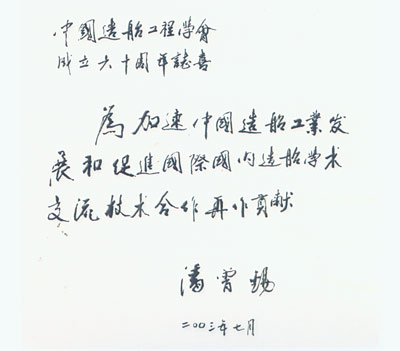 中國造船工程學會
成立六十周年誌喜
為加速中國造船工業发
展和促進國際國内造船学术
交流技术合作再作貢献
潘曾锡
二00三年七月